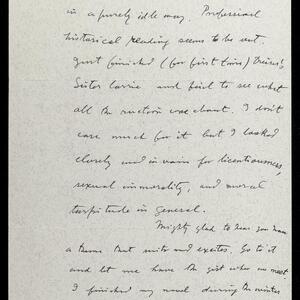 in a purely idle way. Professional
historical reading seems to be out.
Just finished (for first time) Dreiser's
Sister Carrie and fail to see what
all the ruction was about. I don't
care much for it but I looked
closely and in vain for licentiousness,
sexual immorality, and moral
turpitude in general.
Mighty glad to hear you have
a theme that suits and excites. Go to it
and let me have the gist when we meet
I finished my novel during the winter